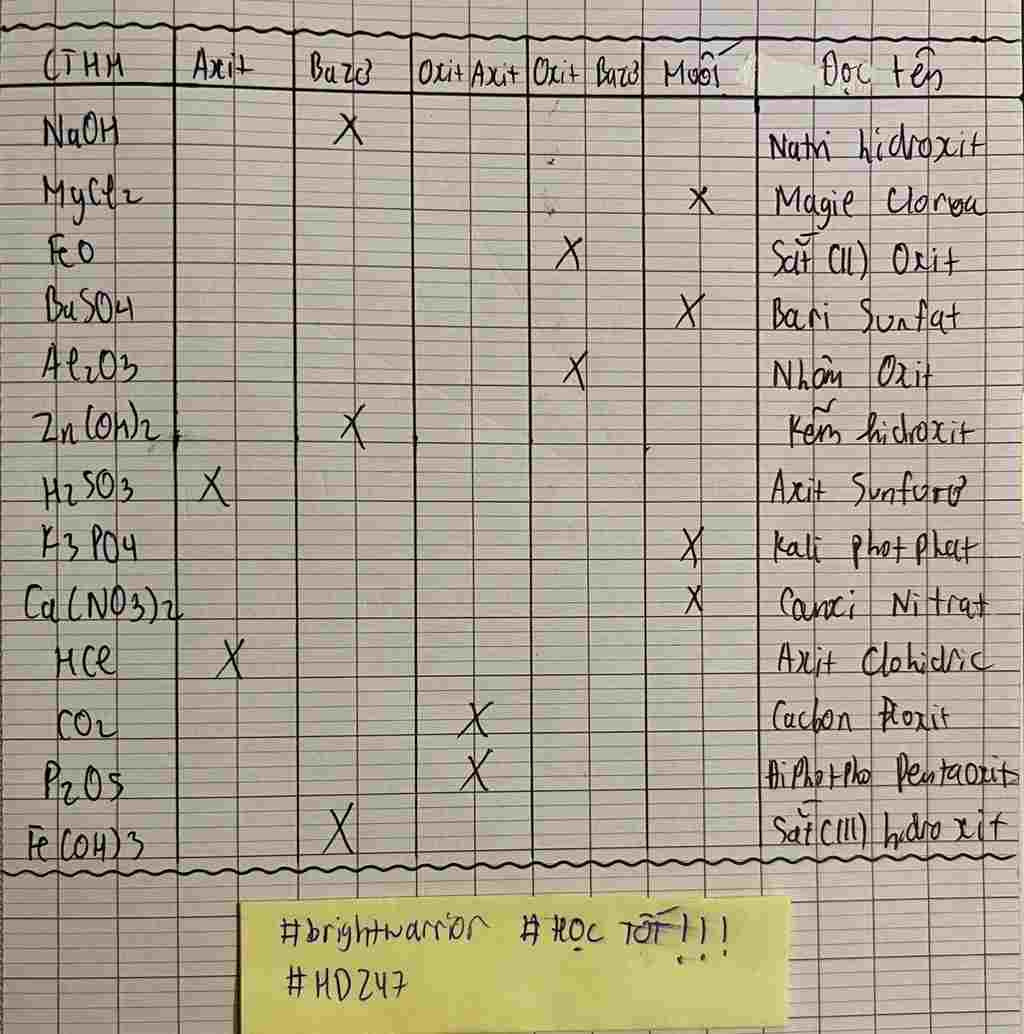 CTHH Axit Bazơ Oxit Axit Oxit Bazơ Muối Đọc tên
NaOH X Natri hidroxit
MgCl2 X Magie Clorua
FeO X Sắt (II) Oxit
BaSO4 X Bari Sunfat
Al2O3 X Nhôm Oxit
Zn(OH)2 X Kẽm hidroxit
H2SO3 X Axit Sunfurơ
K3PO4 X Kali photphat
Ca(NO3)2 X Canxi Nitrat
HCl X Axit Clohidric
CO2 X Cacbon đioxit
P2O5 X Điphotpho Pentaoxit
Fe(OH)3 X Sắt (III) hidroxit
#brightwarrior #HỌC TỐT!!!
#HD247